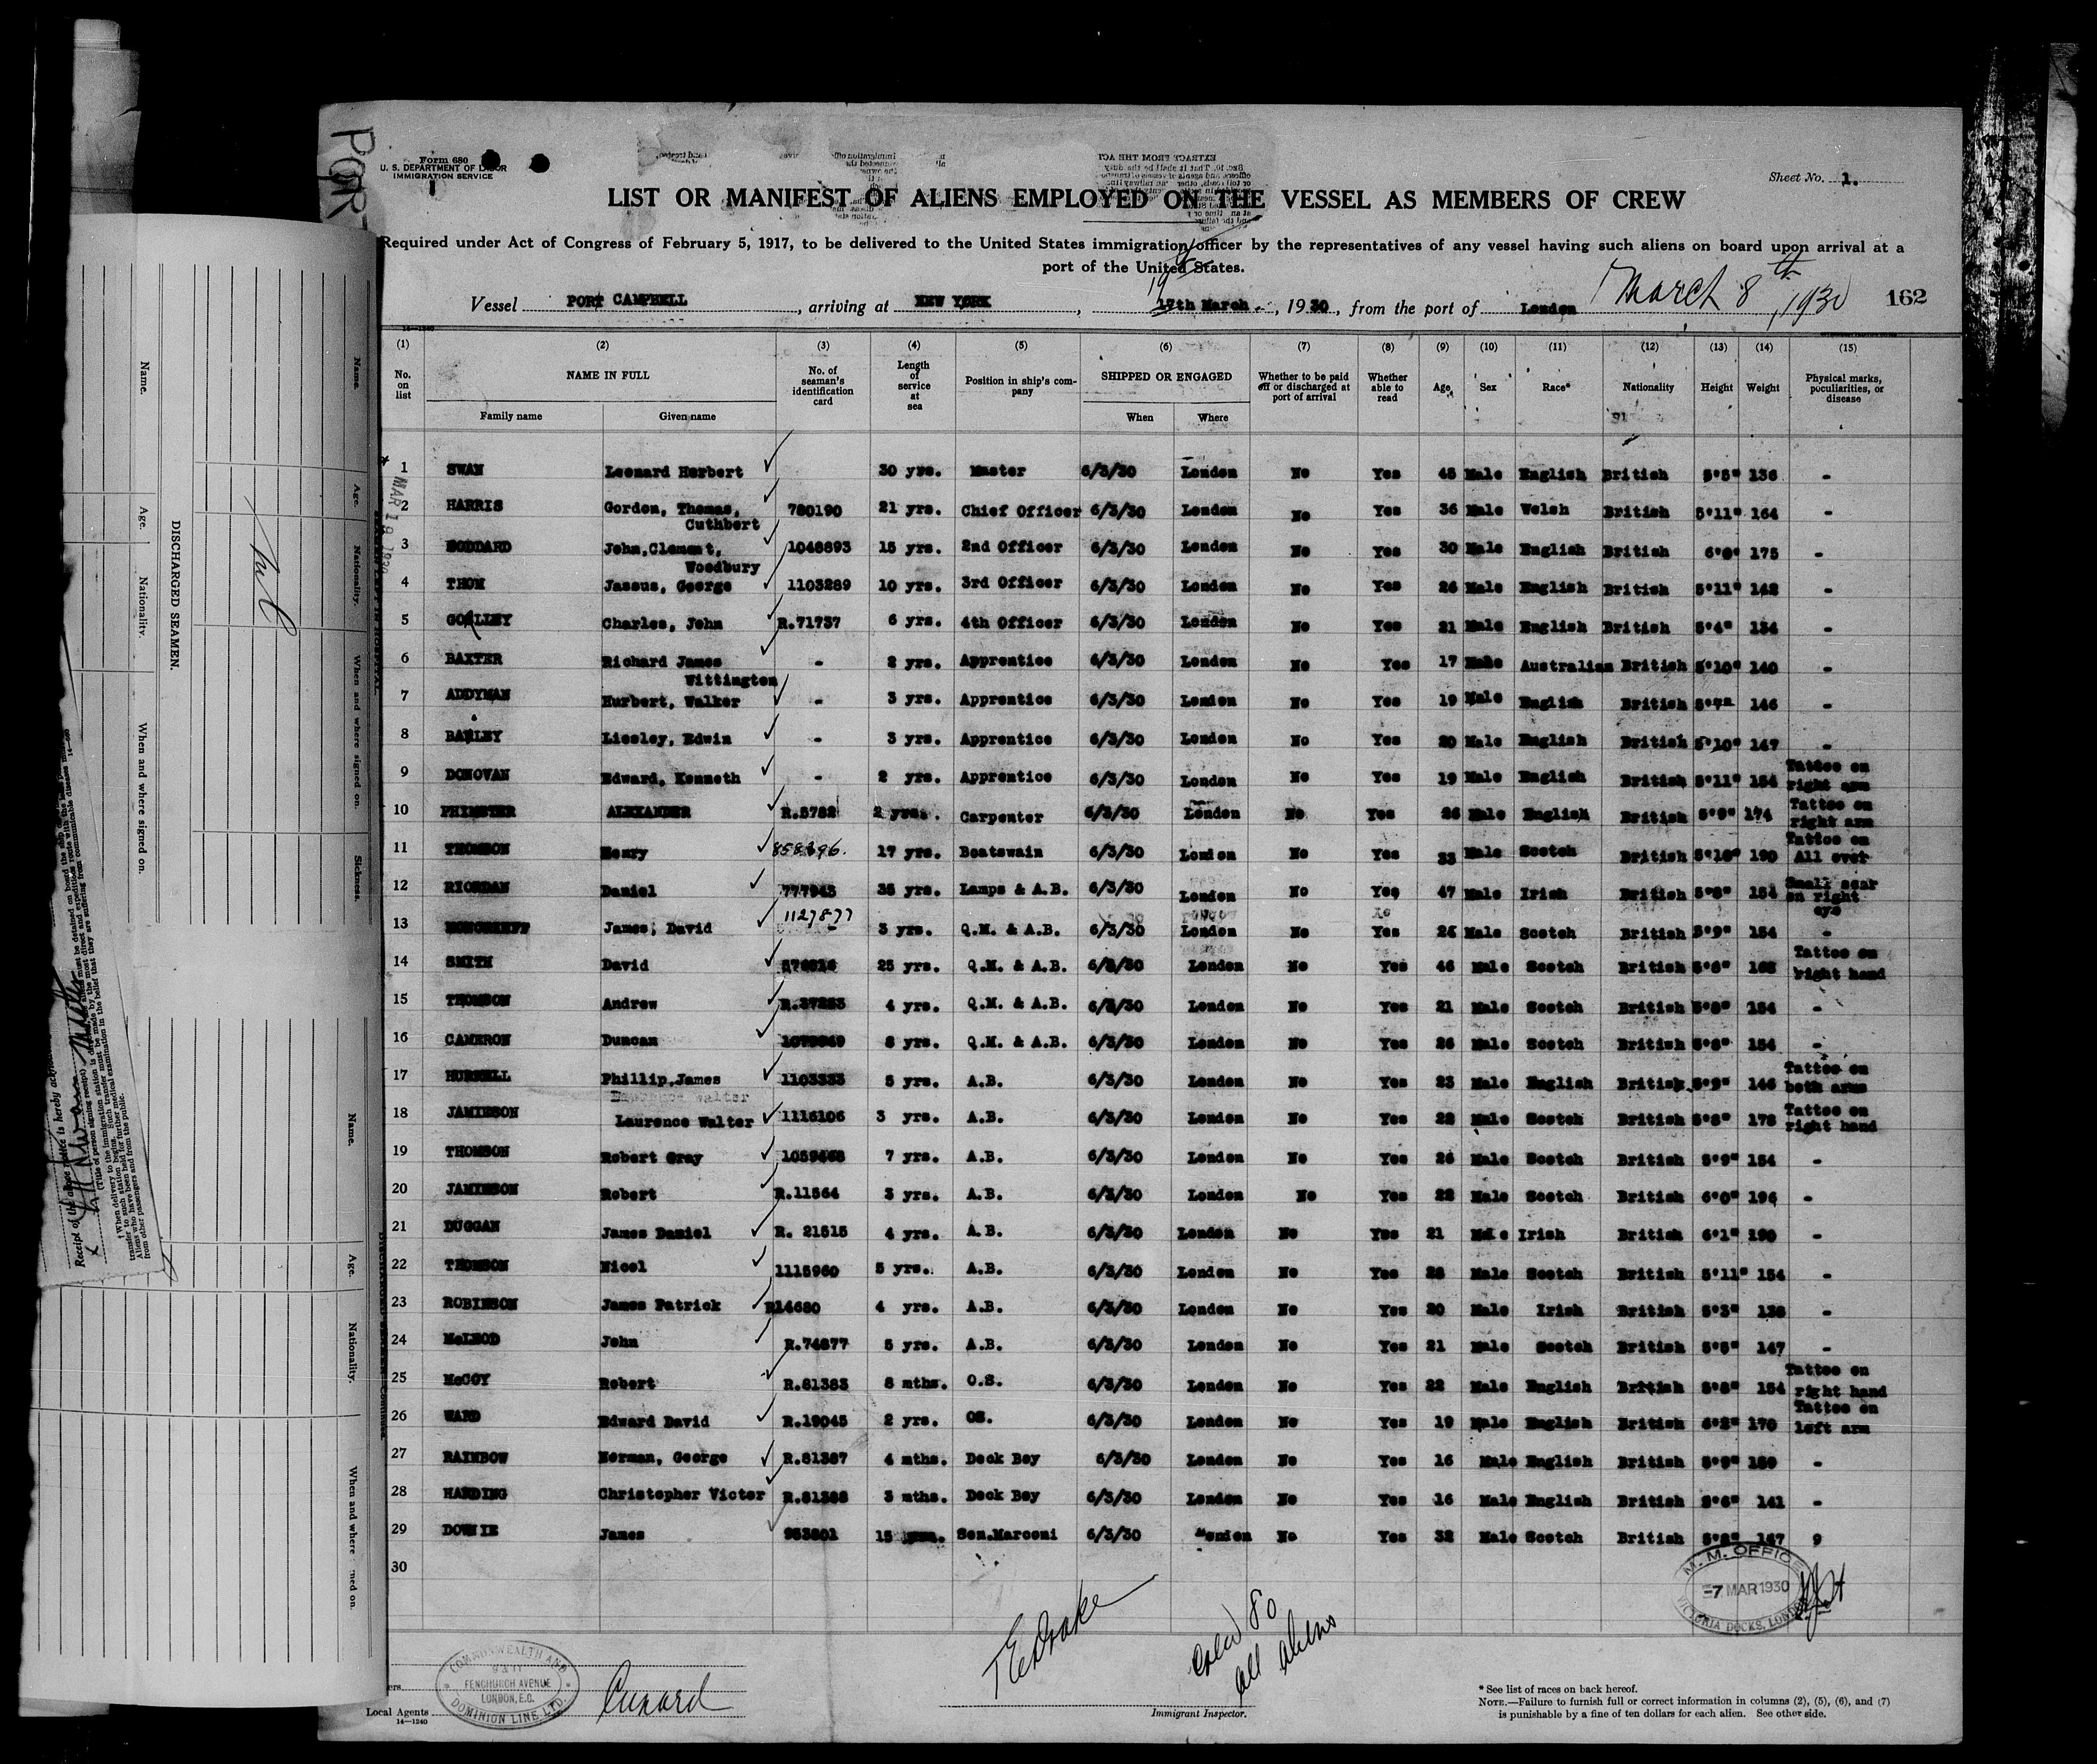 PORT
Form 680
U. S. DEPARTMENT OF LABOR
IMMIGRATION SERVICE
EXTRACT FROM THE ACT
Sheet No. 1.
LIST OR MANIFEST OF ALIENS EMPLOYED ON THE VESSEL AS MEMBERS OF CREW
Required under Act of Congress of February 5, 1917, to be delivered to the United States immigration officer by the representatives of any vessel having such aliens on board upon arrival at a
port of the United States.
Vessel PORT CAMPBELL, arriving at NEW YORK, 17th March, 1930, from the port of London March 8th, 1930 162
19
14—1240
(1) (2) (3) (4) (5) (6) (7) (8) (9) (10) (11) (12) (13) (14) (15)
No. on list NAME IN FULL No. of seaman's identification card Length of service at sea Position in ship's company SHIPPED OR ENGAGED Whether to be paid off or discharged at port of arrival Whether able to read Age Sex Race* Nationality Height Weight Physical marks, peculiarities, or disease
Family name Given name When Where
1 SWAN Leonard Herbert 30 yrs. Master 6/3/30 London No Yes 45 Male English British 5'5" 136 -
2 HARRIS Gordon, Thomas, Cuthbert 780190 21 yrs. Chief Officer 6/3/30 London No Yes 36 Male Welsh British 5'11" 164 -
3 HODDARD John, Clement, Woodbury 1046893 15 yrs. 2nd Officer 6/3/30 London No Yes 30 Male English British 6'0" 175 -
4 THOM Jassus, George 1103289 10 yrs. 3rd Officer 6/3/30 London No Yes 26 Male English British 5'11" 142 -
5 Charles, John R.71737 6 yrs. 4th Officer 6/3/30 London No Yes 21 Male English British 5'4" 134 -
6 BAXTER Richard James Wittington - 2 yrs. Apprentice 6/3/30 London No Yes 17 Male Australian British 5'10" 140 -
7 ADDYMAN Hurbert, Walker - 3 yrs. Apprentice 6/3/30 London No Yes 19 Male English British 146 -
8 Liesley, Edwin - 3 yrs. Apprentice 6/3/30 London No Yes 20 Male English British 5'10" 147 -
9 DONOVAN Edward, Kenneth - 2 yrs. Apprentice 6/3/30 London No Yes 19 Male English British 5'11" 154 Tattoo on right arm
10 PHIMSTER ALEXANDER R.5782 2 yrs. Carpenter 6/3/30 London No Yes 26 Male English British 5'9" 174 Tattoo on right arm
11 THOMSON Henry 17 yrs. Boatswain 6/3/30 London No Yes 33 Male Scotch British 5'10" 190 Tattoo on All over
12 RIORDAN Daniel 777943 35 yrs. Lamps & A.B. 6/3/30 London No Yes 47 Male Irish British 5'8" 154 Small scar on right eye
13 MONCRIEFF James, David 1127877 3 yrs. Q.M. & A.B. 6/3/30 London No Yes Male Scotch British 5'9" 154 -
14 SMITH David 25 yrs. Q.M. & A.B. 6/3/30 London No Yes 46 Male Scotch British Tattoo on right hand
15 THOMSON Andrew 4 yrs. Q.M. & A.B. 6/3/30 London No Yes 21 Male Scotch British 5'8" 154 -
16 CAMERON Duncan 8 yrs. Q.M. & A.B. 6/3/30 London No Yes 26 Male Scotch British 5'8" 154 -
17 Phillip, James 1103333 5 yrs. A.B. 6/3/30 London No Yes 23 Male English British 5'9" 146 Tattoo on both arms
18 JAMIESON Laurence Walter 1116106 3 yrs. A.B. 6/3/30 London No Yes 22 Male Scotch British 5'8" 178 Tattoo on right hand
19 THOMSON Robert Gray 7 yrs. A.B. 6/3/30 London No Yes 26 Male Scotch British 5'9" 154 -
20 JAMIESON Robert R.11564 3 yrs. A.B. 6/3/30 London No Yes 22 Male Scotch British 6'0" 196 -
21 DUGGAN James Daniel R. 21515 4 yrs. A.B. 6/3/30 London No Yes 21 Male Irish British 6'1" 190 -
22 THOMSON Nicol 1115960 5 yrs. A.B. 6/3/30 London No Yes Male Scotch British 5'11" 154 -
23 ROBINSON James Patrick R14680 4 yrs. A.B. 6/3/30 London No Yes 20 Male Irish British 5'3" -
24 McLEOD John R.74677 5 yrs. A.B. 6/3/30 London No Yes 21 Male Scotch British 5'5" 147 -
25 McCOY Robert R.81383 8 mths. O.S. 6/3/30 London No Yes 22 Male English British 5'8" 154 Tattoo on right hand
26 WARD Edward David R.19045 2 yrs. OS. 6/3/30 London No Yes 19 Male English British 6'2" 170 Tattoo on left arm
27 RAINBOW Norman, George R.81387 4 mths. Deck Boy 6/3/30 London No Yes 16 Male English British 5'9" -
28 HARDING Christopher Victor R.81388 3 mths. Deck Boy 6/3/30 London No Yes 16 Male English British 5'6" 141 -
29 DOWNIE James 953801 15 yrs. Sen.Marconi 6/3/30 London No Yes 32 Male Scotch British 5'8" 147 9
30
M. M. OFFICE
-7 MAR 1930
VICTORIA DOCKS, LONDON
TEDrake
Crew 80
all aliens
COMMONWEALTH AND
FENCHURCH AVENUE
LONDON, E.C.
DOMINION LINE, LTD.
Cunard
Local Agents
14—1240
Immigrant Inspector.
* See list of races on back hereof.
NOTE.—Failure to furnish full or correct information in columns (2), (5), (6), and (7)
is punishable by a fine of ten dollars for each alien. See other side.
MAR 18 1930
DISCHARGED SEAMEN.
Name. Age. Nationality. When and where signed on.
Name. Age. Nationality. When and where signed on. Sickness.
Nil
Name. Age. Nationality. When and where
Receipt of the above notice is hereby
(Title of person signing receipt)